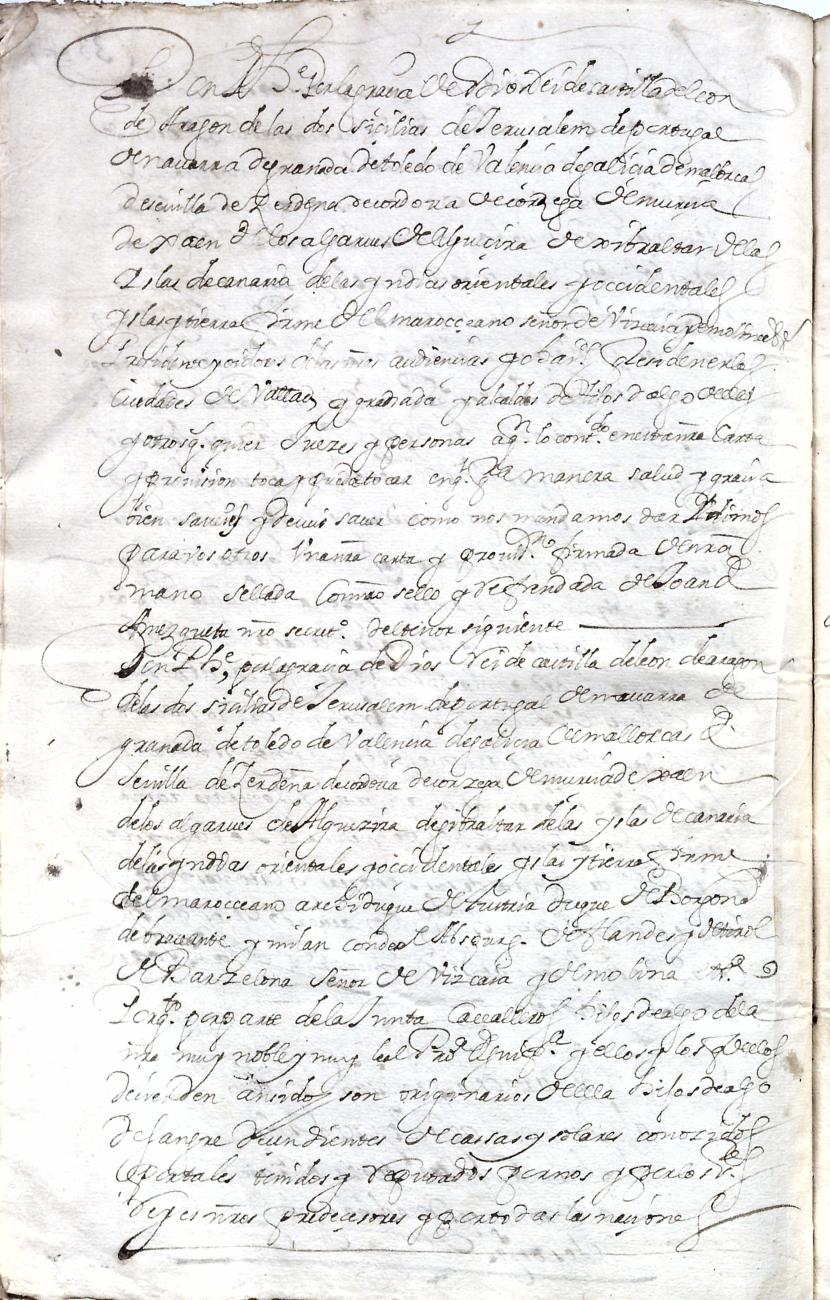 Don Phe. por la gracia de Dios Rei de castilla de leon
de Aragon de las dos sicilias de Jerusalem de portugal
de navarra de granada de toledo de Valencia de galicia de mallorcas
de sevilla de zerdeña de cordova de corzega de murcia
de xaen de los algarves de Algecira de xibraltar de las
yslas de canaria de las yndias orientales y occidentales
yslas y tierra firme del mar occeano señor de Vizcaia y de molina
Presidente y oidores de las nras audiencias que residen en las
ciudades de Vallad y granada y alcaldes de hijos dalgo de ellas
y otros q. quier Juezes y personas a qn. lo contdo. en esta nra Carta
y provision toca y puede tocar en q. qr manera salud y gracia
bien saveis y deveis saver como nos mandamos dar y dimos
para vos otros Una nra carta y provissn. firmada de nra
mano sellada Con nro sello y refrendada de Joan de
Amezqueta nro secreto. del tenor siguiente
Don Phe, por la gracia de Dios Rei de castilla de leon de aragon
de las dos sicilias de Jerusalem de portugal de navarra de
granada de toledo de Valencia de galicia de mallorcas de
Sevilla de Zerdeña de cordova de corzega de murcia de xaen
de los algarves de Algezira de gibraltar de las yslas de canaria
de las yndias orientales y occidentales yslas y tierra firme
del mar occeano archiduque de Austria duque de Borgoña
de bravante y milan conde de Abspurg de flandes y de tirol
de Barzelona señor de Vizcaia y de molina etta.
Por qto. por parte de la Junta Cavalleros hijosdealgo de la
nra muy noble y muy leal Proa. de Guipca. y ellos y los q de ellos
decienden an sido y son originarios de ella hijos dealgo
de sangre decendientes de cassas y solares conozidos
y por tales tenidos y reputados por nos y por los
reyes nros predecesores y por todas las naciones